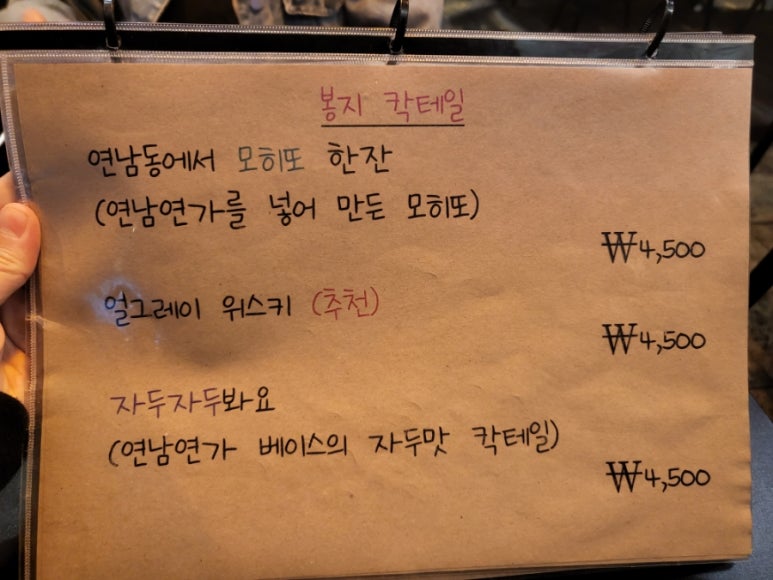 봉지 칵테일
연남동에서 모히또 한잔
(연남연가를 넣어 만든 모히또)
₩4,500
얼그레이 위스키 (추천)
₩4,500
자두자두봐요
(연남연가 베이스의 자두맛 칵테일)
₩4,500